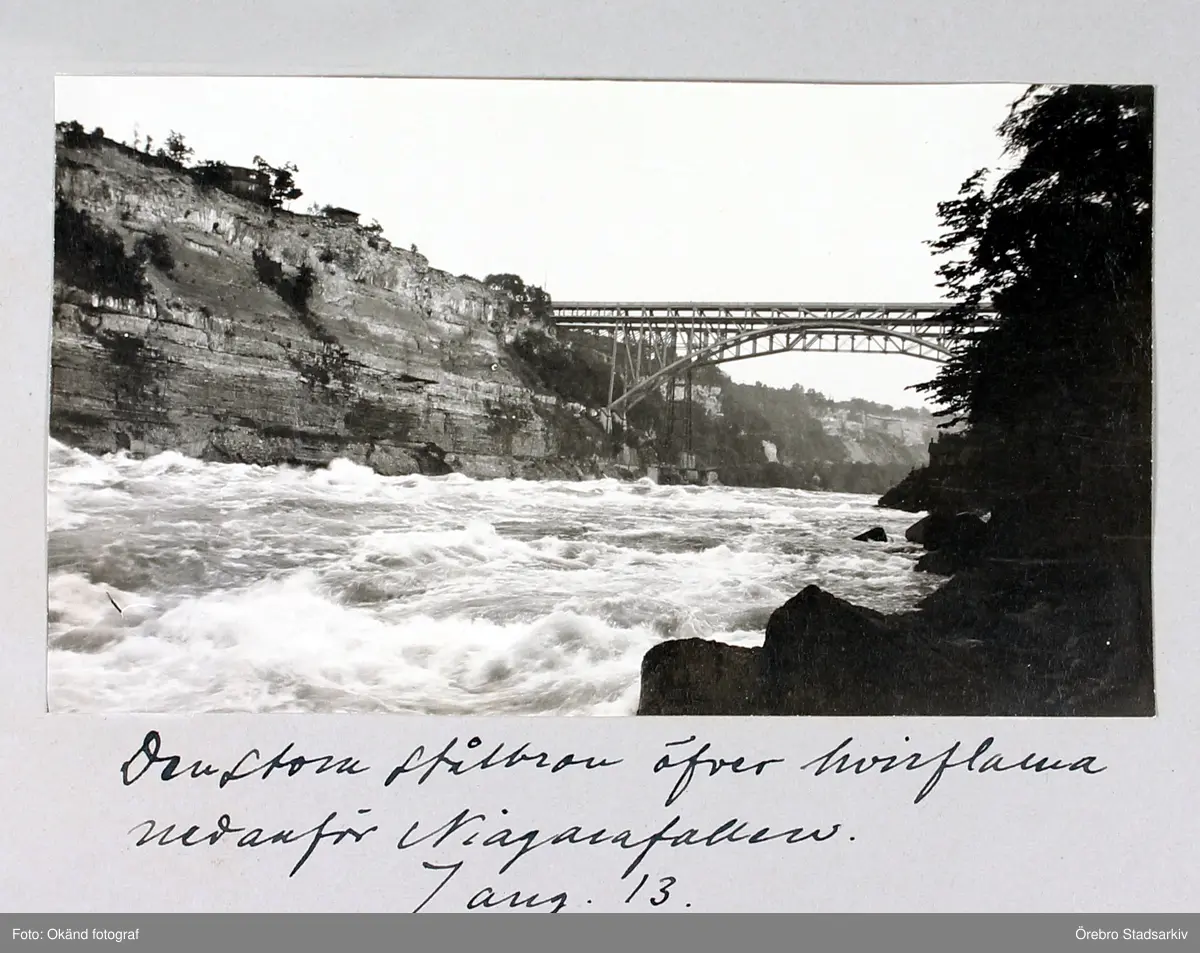 Den stora stålbron öfver hvirflarna
nedanför Niagarafallen.
7 aug. 13.
Foto: Okänd fotograf
Örebro Stadsarkiv